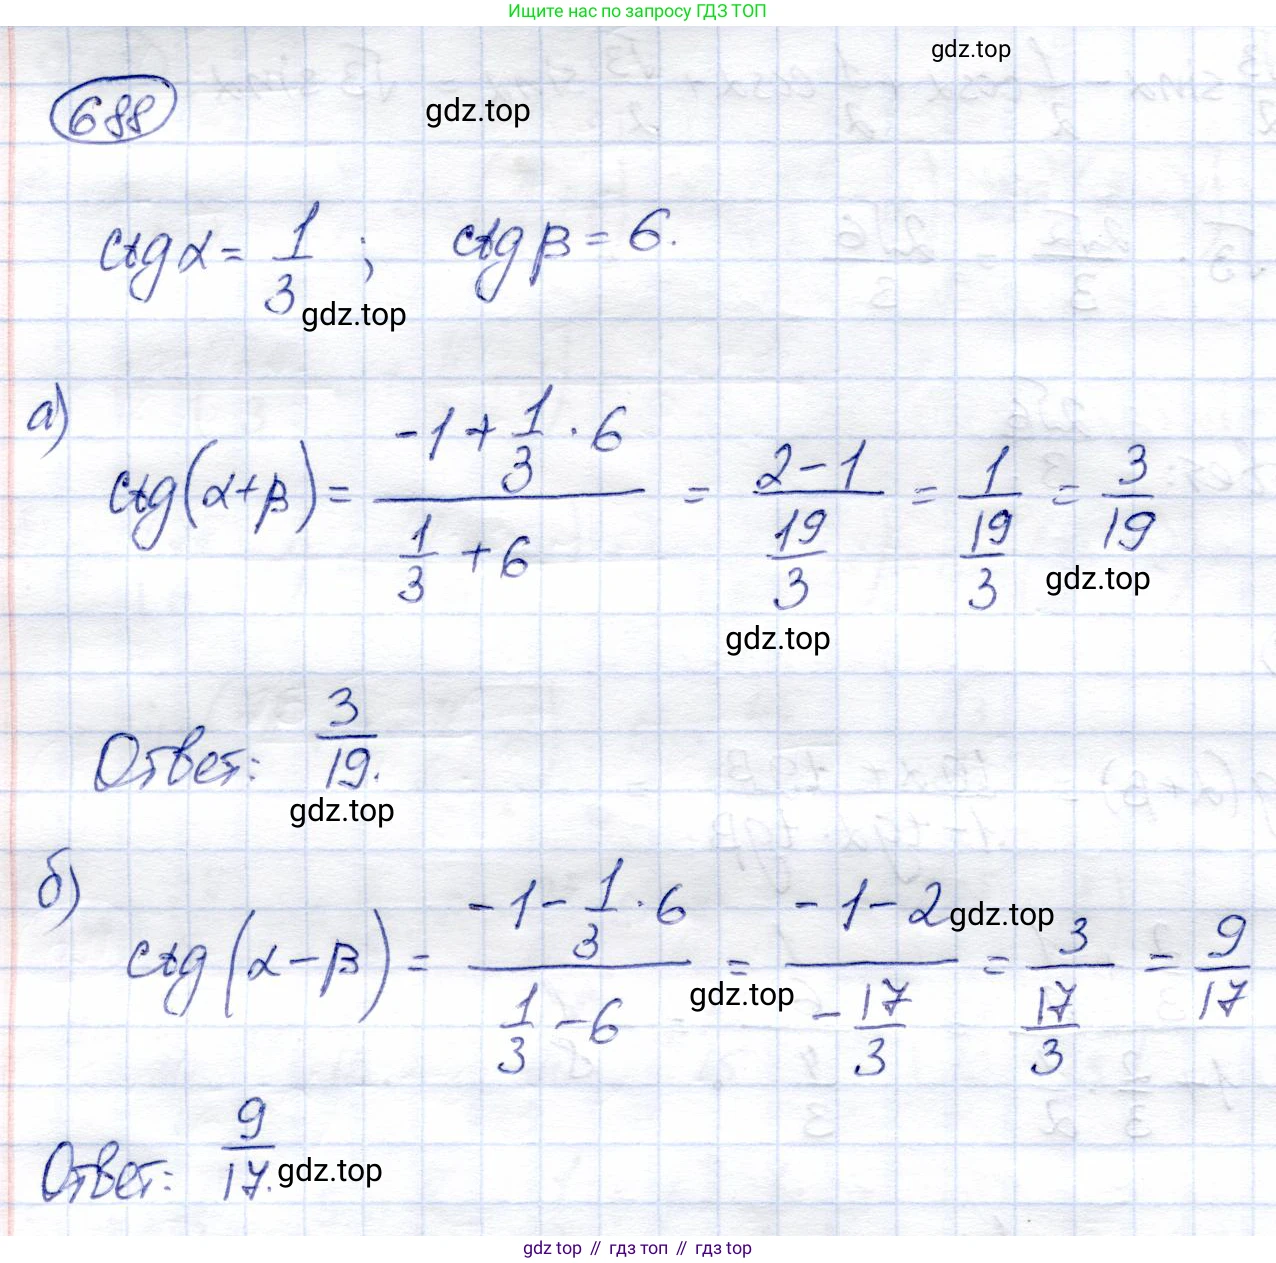 Ищите нас по запросу ГДЗ ТОП
gdz.top
688
gdz.top
ctg α = 1/3 ; ctg β = 6.
gdz.top
а)
ctg(α+β) = (-1 + 1/3 · 6)/(1/3 + 6) = (2-1)/(19/3) = 1/(19/3) = 3/19
gdz.top
gdz.top
Ответ: 3/19.
gdz.top
б)
ctg(α-β) = (-1 - 1/3 · 6)/(1/3 - 6) = (-1-2)/(-17/3) = 3/(17/3) = 9/17
gdz.top
gdz.top
Ответ: 9/17.
gdz.top
gdz top // гдз топ // gdz top